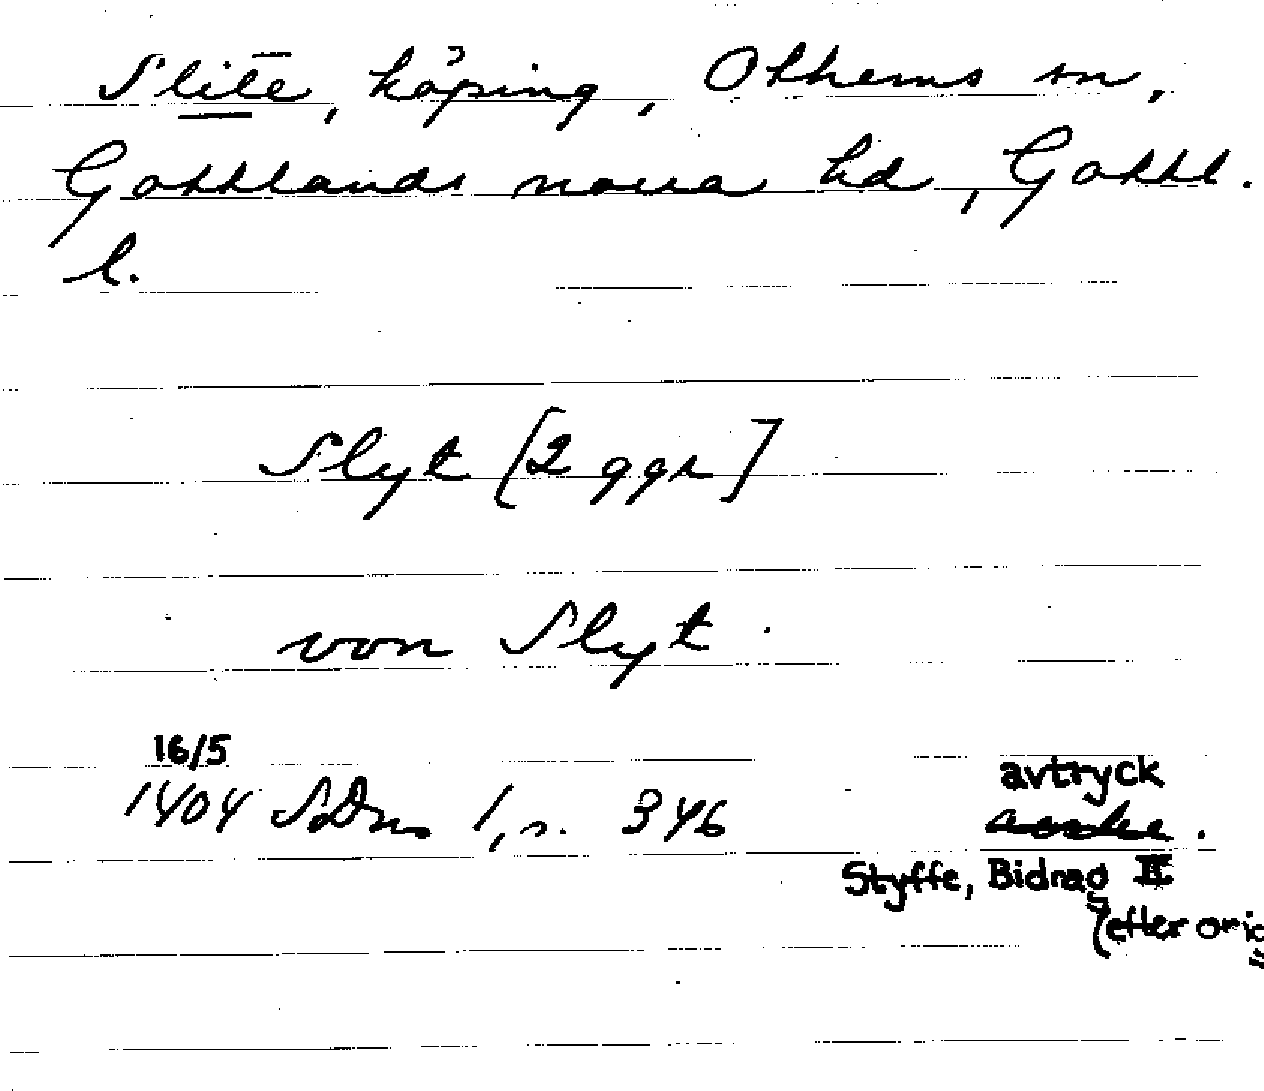 Slite, köping, Othems sn,
Gotlands norra hd, Gottl.
l.
Slyt [2 ggr]
von Slyt.
16/5
1404 SDns 1, s. 346 avtryck
Styffe, Bidrag II
(efter orig